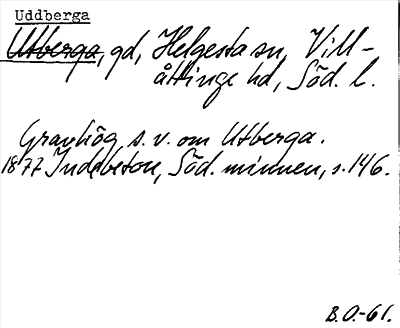 Uddberga
Utberga, gd, Helgesta sn, Vill-
åttinge hd, Söd. l.
Gravhög s. v. om Utberga.
1877 Indebetou, Söd. minnen, s. 146.
B.O.-61.